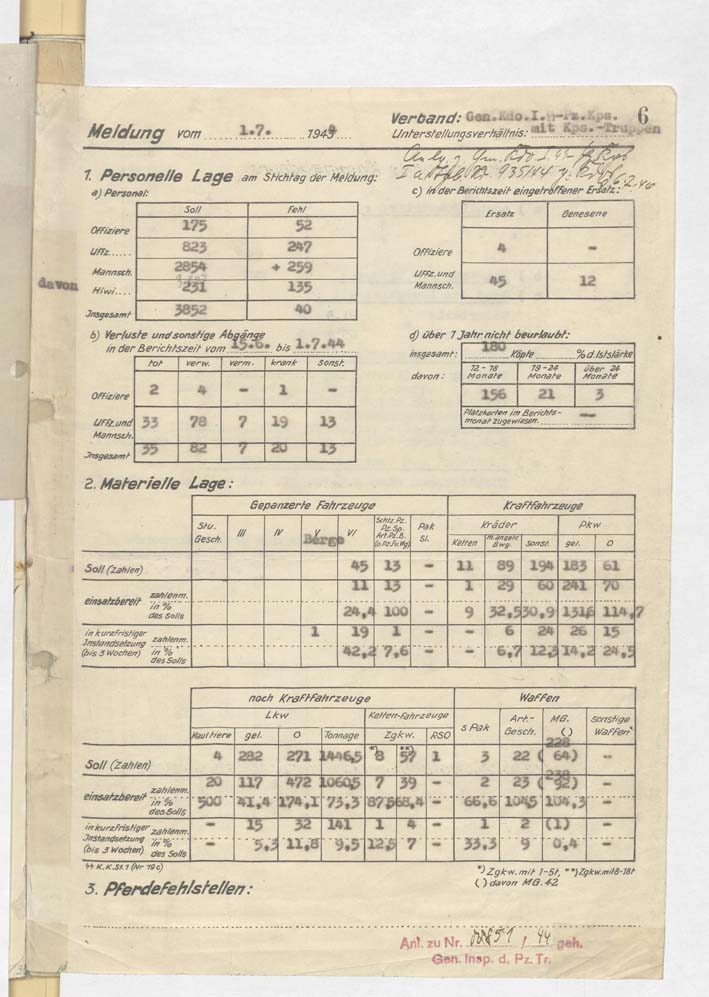 6
Meldung vom 1.7. 1944
Verband: Gen.Kdo.I.SS-Pz.Kps.
Unterstellungsverhältnis: mit Kps.-Truppen
1. Personelle Lage am Stichtag der Meldung:
a) Personal:
Soll Fehl
Offiziere 175 52
Uffz..... 823 247
Mannsch. 2854 + 259
davon Hiwi.... 231 135
Insgesamt 3852 40
c) in der Berichtszeit eingetroffener Ersatz:
Ersatz Genesene
Offiziere 4 -
Uffz. und Mannsch. 45 12
b) Verluste und sonstige Abgänge
in der Berichtszeit vom 15.6. bis 1.7.44
tot verw. verm. krank sonst.
Offiziere 2 4 - 1 -
Uffz. und Mannsch. 33 78 7 19 13
Insgesamt 35 82 7 20 13
d) über 1 Jahr nicht beurlaubt:
insgesamt: 180 Köpfe % d. Iststärke
davon: 12-18 Monate 19-24 Monate über 24 Monate
156 21 3
Platzkarten im Berichtsmonat zugewiesen. -
2. Materielle Lage:
Gepanzerte Fahrzeuge Kraftfahrzeuge
Stu. Gesch. III IV V Berge VI Schtz. Pz. Pz. Sp. Art. Pz. B. (o. Pz. Fu. Wg) Pak Sl. Kräder Pkw
Ketten m. angetr. Bwg. sonst. gel. O
Soll (Zahlen) 45 13 - 11 89 194 183 61
einsatzbereit zahlenm. 11 13 - 1 29 60 241 70
in % des Solls 24,4 100 - 9 32,5 30,9 131,6 114,7
in kurzfristiger Instandsetzung (bis 3 Wochen) zahlenm. 1 19 1 - - 6 24 26 15
in % des Solls 42,2 7,6 - - 6,7 12,3 14,2 24,5
noch Kraftfahrzeuge Waffen
Lkw Ketten-Fahrzeuge s Pak Art.-Gesch. MG. ( ) sonstige Waffen
Maultiere gel. O Tonnage Zgkw. RSO
Soll (Zahlen) 4 282 271 1446,5 *) 8 **) 57 1 3 22 228 ( 64) -
einsatzbereit zahlenm. 20 117 472 1060,5 7 39 - 2 23 238 ( 92) -
in % des Solls 500 41,4 174,1 73,3 87,5 68,4 - 66,6 104,5 104,3 -
in kurzfristiger Instandsetzung (bis 3 Wochen) zahlenm. - 15 32 141 1 4 - 1 2 (1) -
in % des Solls - 5,3 11,8 9,5 12,5 7 - 33,3 9 0,4 -
SS K.K.St. 1 (Nr 19c)
*) Zgkw. mit 1-5t, **) Zgkw. mit 8-18t
( ) davon MG. 42
3. Pferdefehlstellen:
Anl. zu Nr. / 44 geh.
Gen. Insp. d. Pz. Tr.